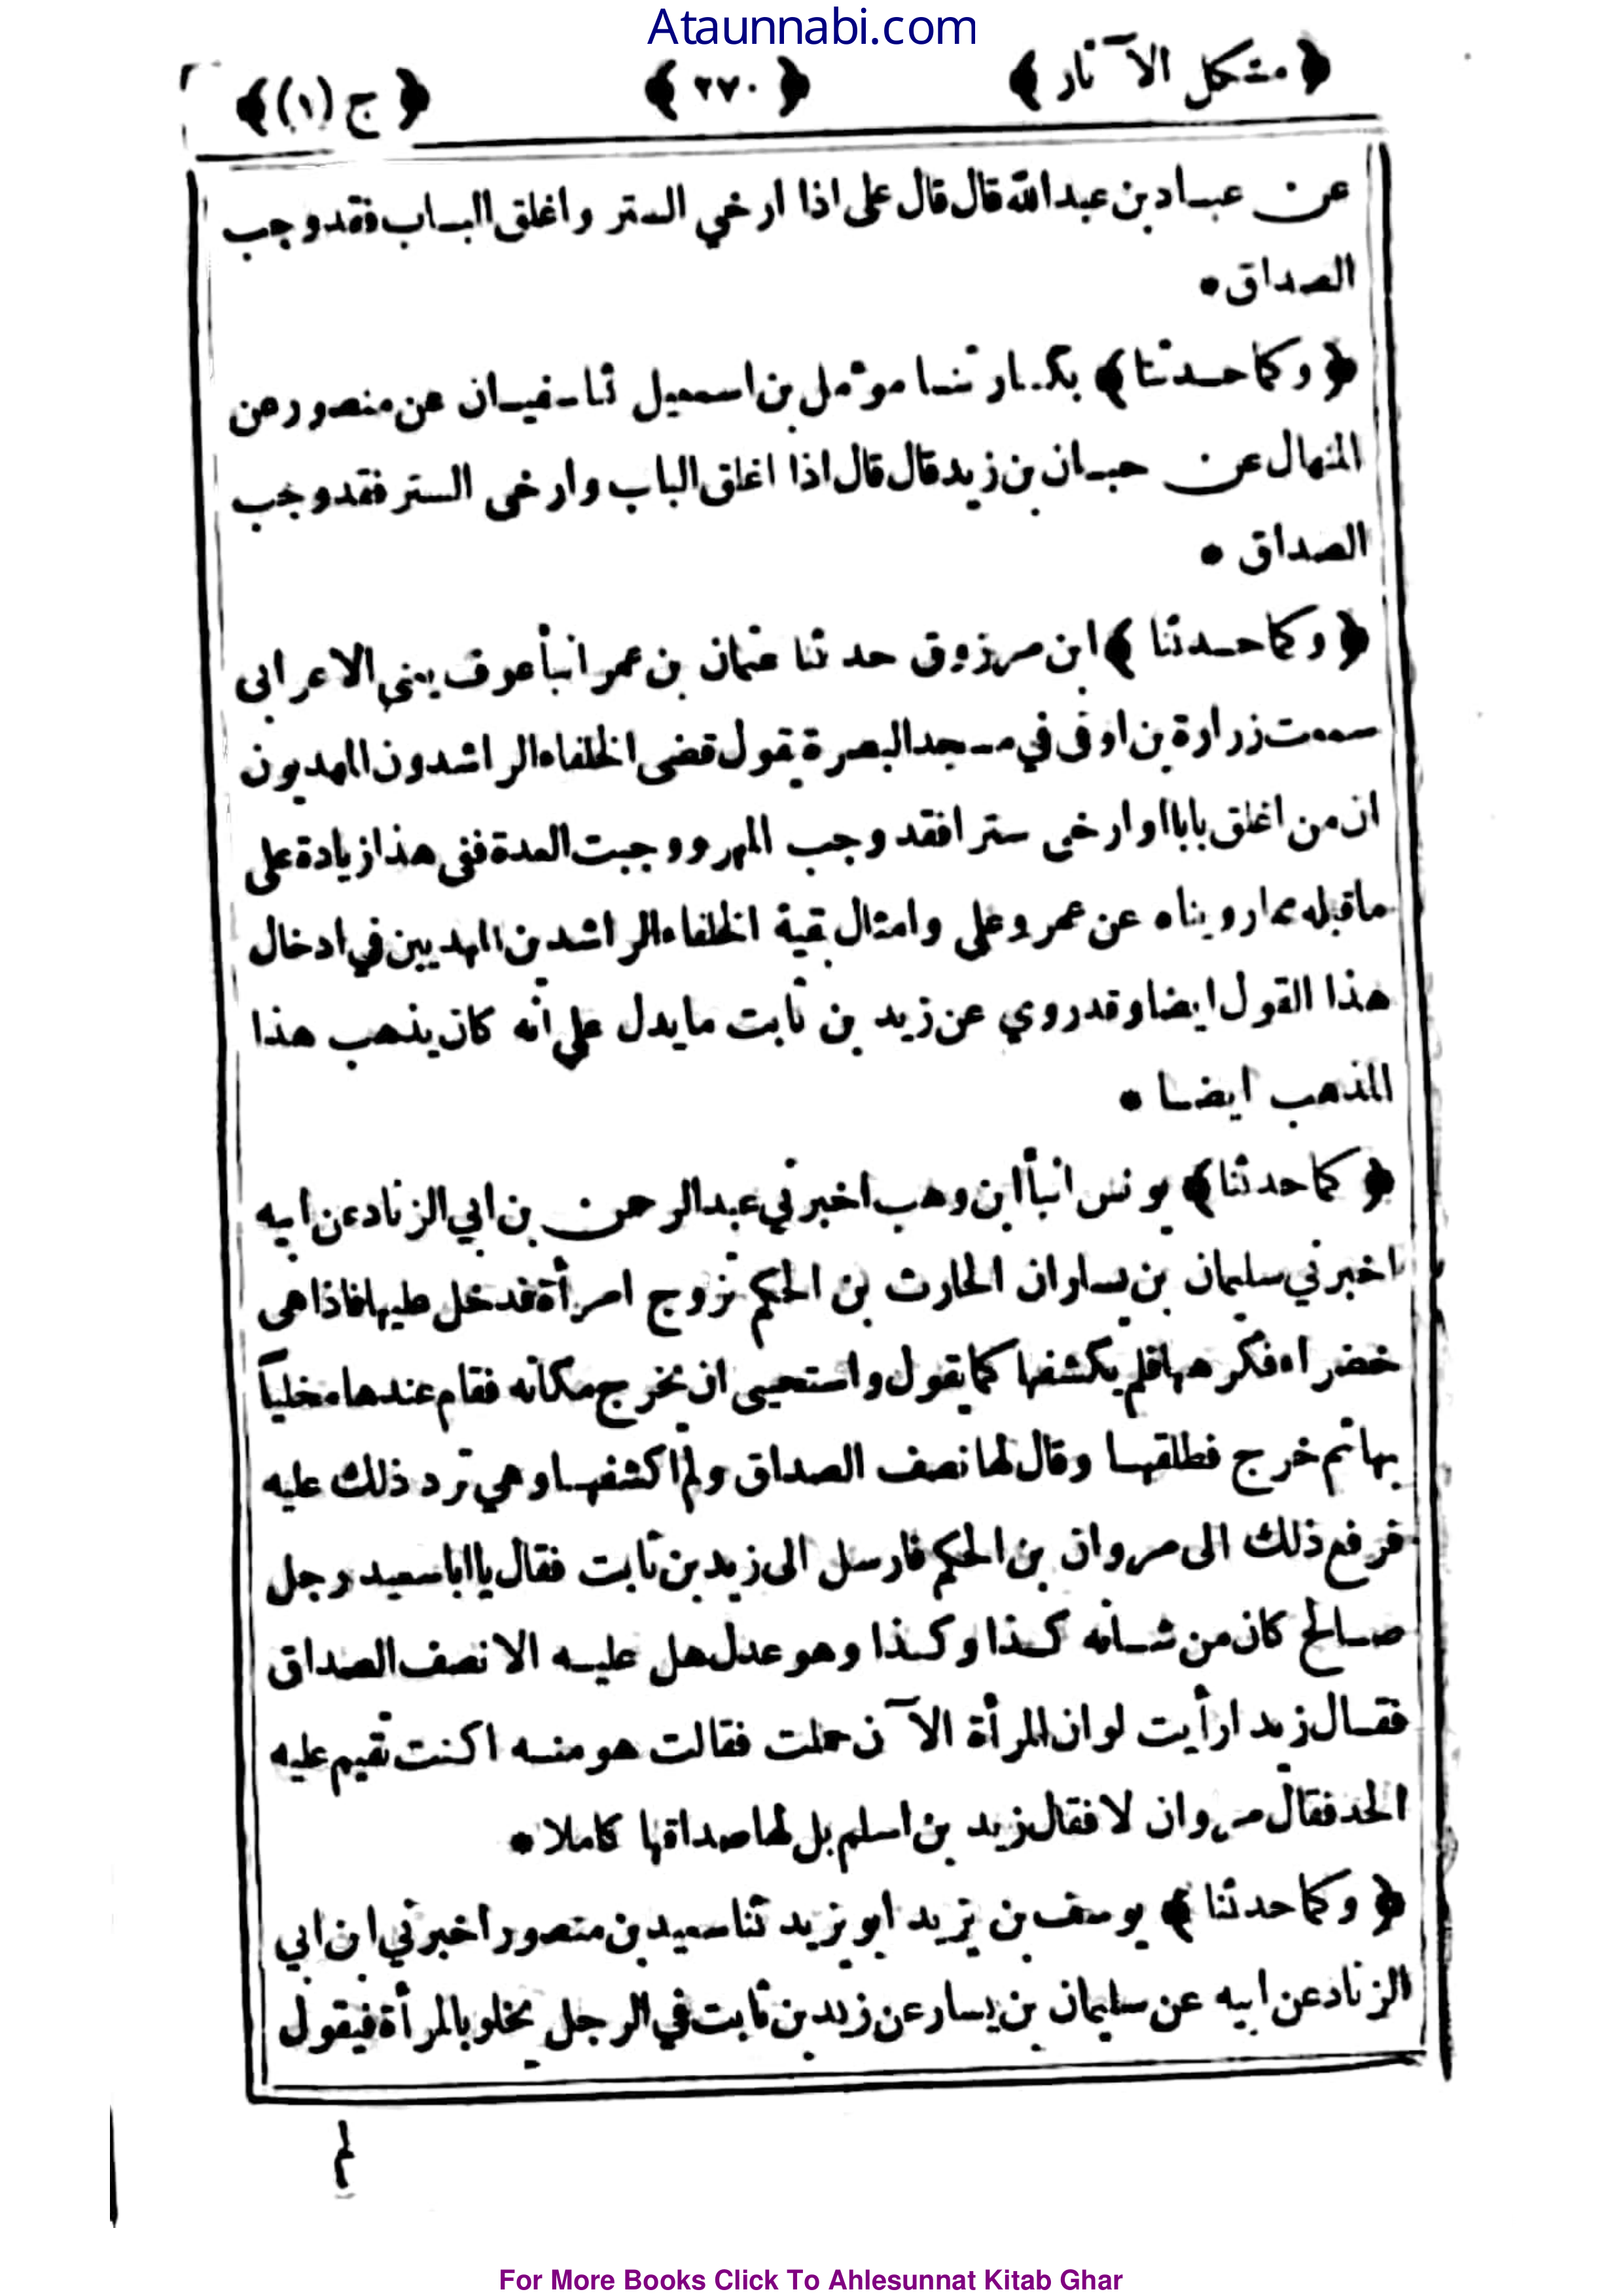 Ataunnabi.com
﴿ مشكل الآثار ﴾ ﴿ ٢٧٠ ﴾ ﴿ ج (١) ﴾
عن عباد بن عبد الله قال قال على اذا ارخي الستر واغلق الباب فقد وجب
الصداق •
﴿ وكما حدثنا ﴾ بكار ثنا مؤمل بن اسمعيل ثنا سفيان عن منصور عن
المنهال عن حبان بن زيد قال قال اذا اغلق الباب وارخى الستر فقد وجب
الصداق •
﴿ وكما حدثنا ﴾ ابن مرزوق حدثنا عثمان بن عمر انبأ عوف يعنى الاعرابى
سمعت زرارة بن اوفى في مسجد البصرة يقول قضى الخلفاء الراشدون المهديون
ان من اغلق بابا او ارخى سترا فقد وجب المهر ووجبت العدة ففى هذا زيادة على
ماقبله مما رويناه عن عمر وعلى وامثال بقية الخلفاء الراشدين المهديين في ادخال
هذا القول ايضا وقد روي عن زيد بن ثابت مايدل على أنه كان يذهب هذا
المذهب ايضا •
﴿ كما حدثنا ﴾ يونس انبأ ابن وهب اخبرني عبد الرحمن بن ابي الزناد عن ابيه
اخبرني سليمان بن يسار ان الحارث بن الحكم تزوج امرأة فدخل عليها فاذا هى
خضراء فكرهها فلم يكشفها كما يقول واستحيى ان يخرج مكانه فقام عندها مخلياً
بها ثم خرج فطلقها وقال لها نصف الصداق ولم اكشفها وهي ترد ذلك عليه
فرفع ذلك الى مروان بن الحكم فارسل الى زيد بن ثابت فقال يا ابا سعيد رجل
صالح كان من شأنه كذا وكذا وهو عدل هل عليه الا نصف الصداق
فقال زيد ارأيت لو ان المرأة الآن حملت فقالت هو منه اكنت تقيم عليه
الحد فقال مروان لا فقال زيد بن اسلم بل لها صداقها كاملا •
﴿ وكما حدثنا ﴾ يوسف بن يزيد ابو يزيد ثنا سعيد بن منصور اخبرني ابن ابي
الزناد عن ابيه عن سليمان بن يسار عن زيد بن ثابت في الرجل يخلو بالمرأة فيقول
لم
For More Books Click To Ahlesunnat Kitab Ghar